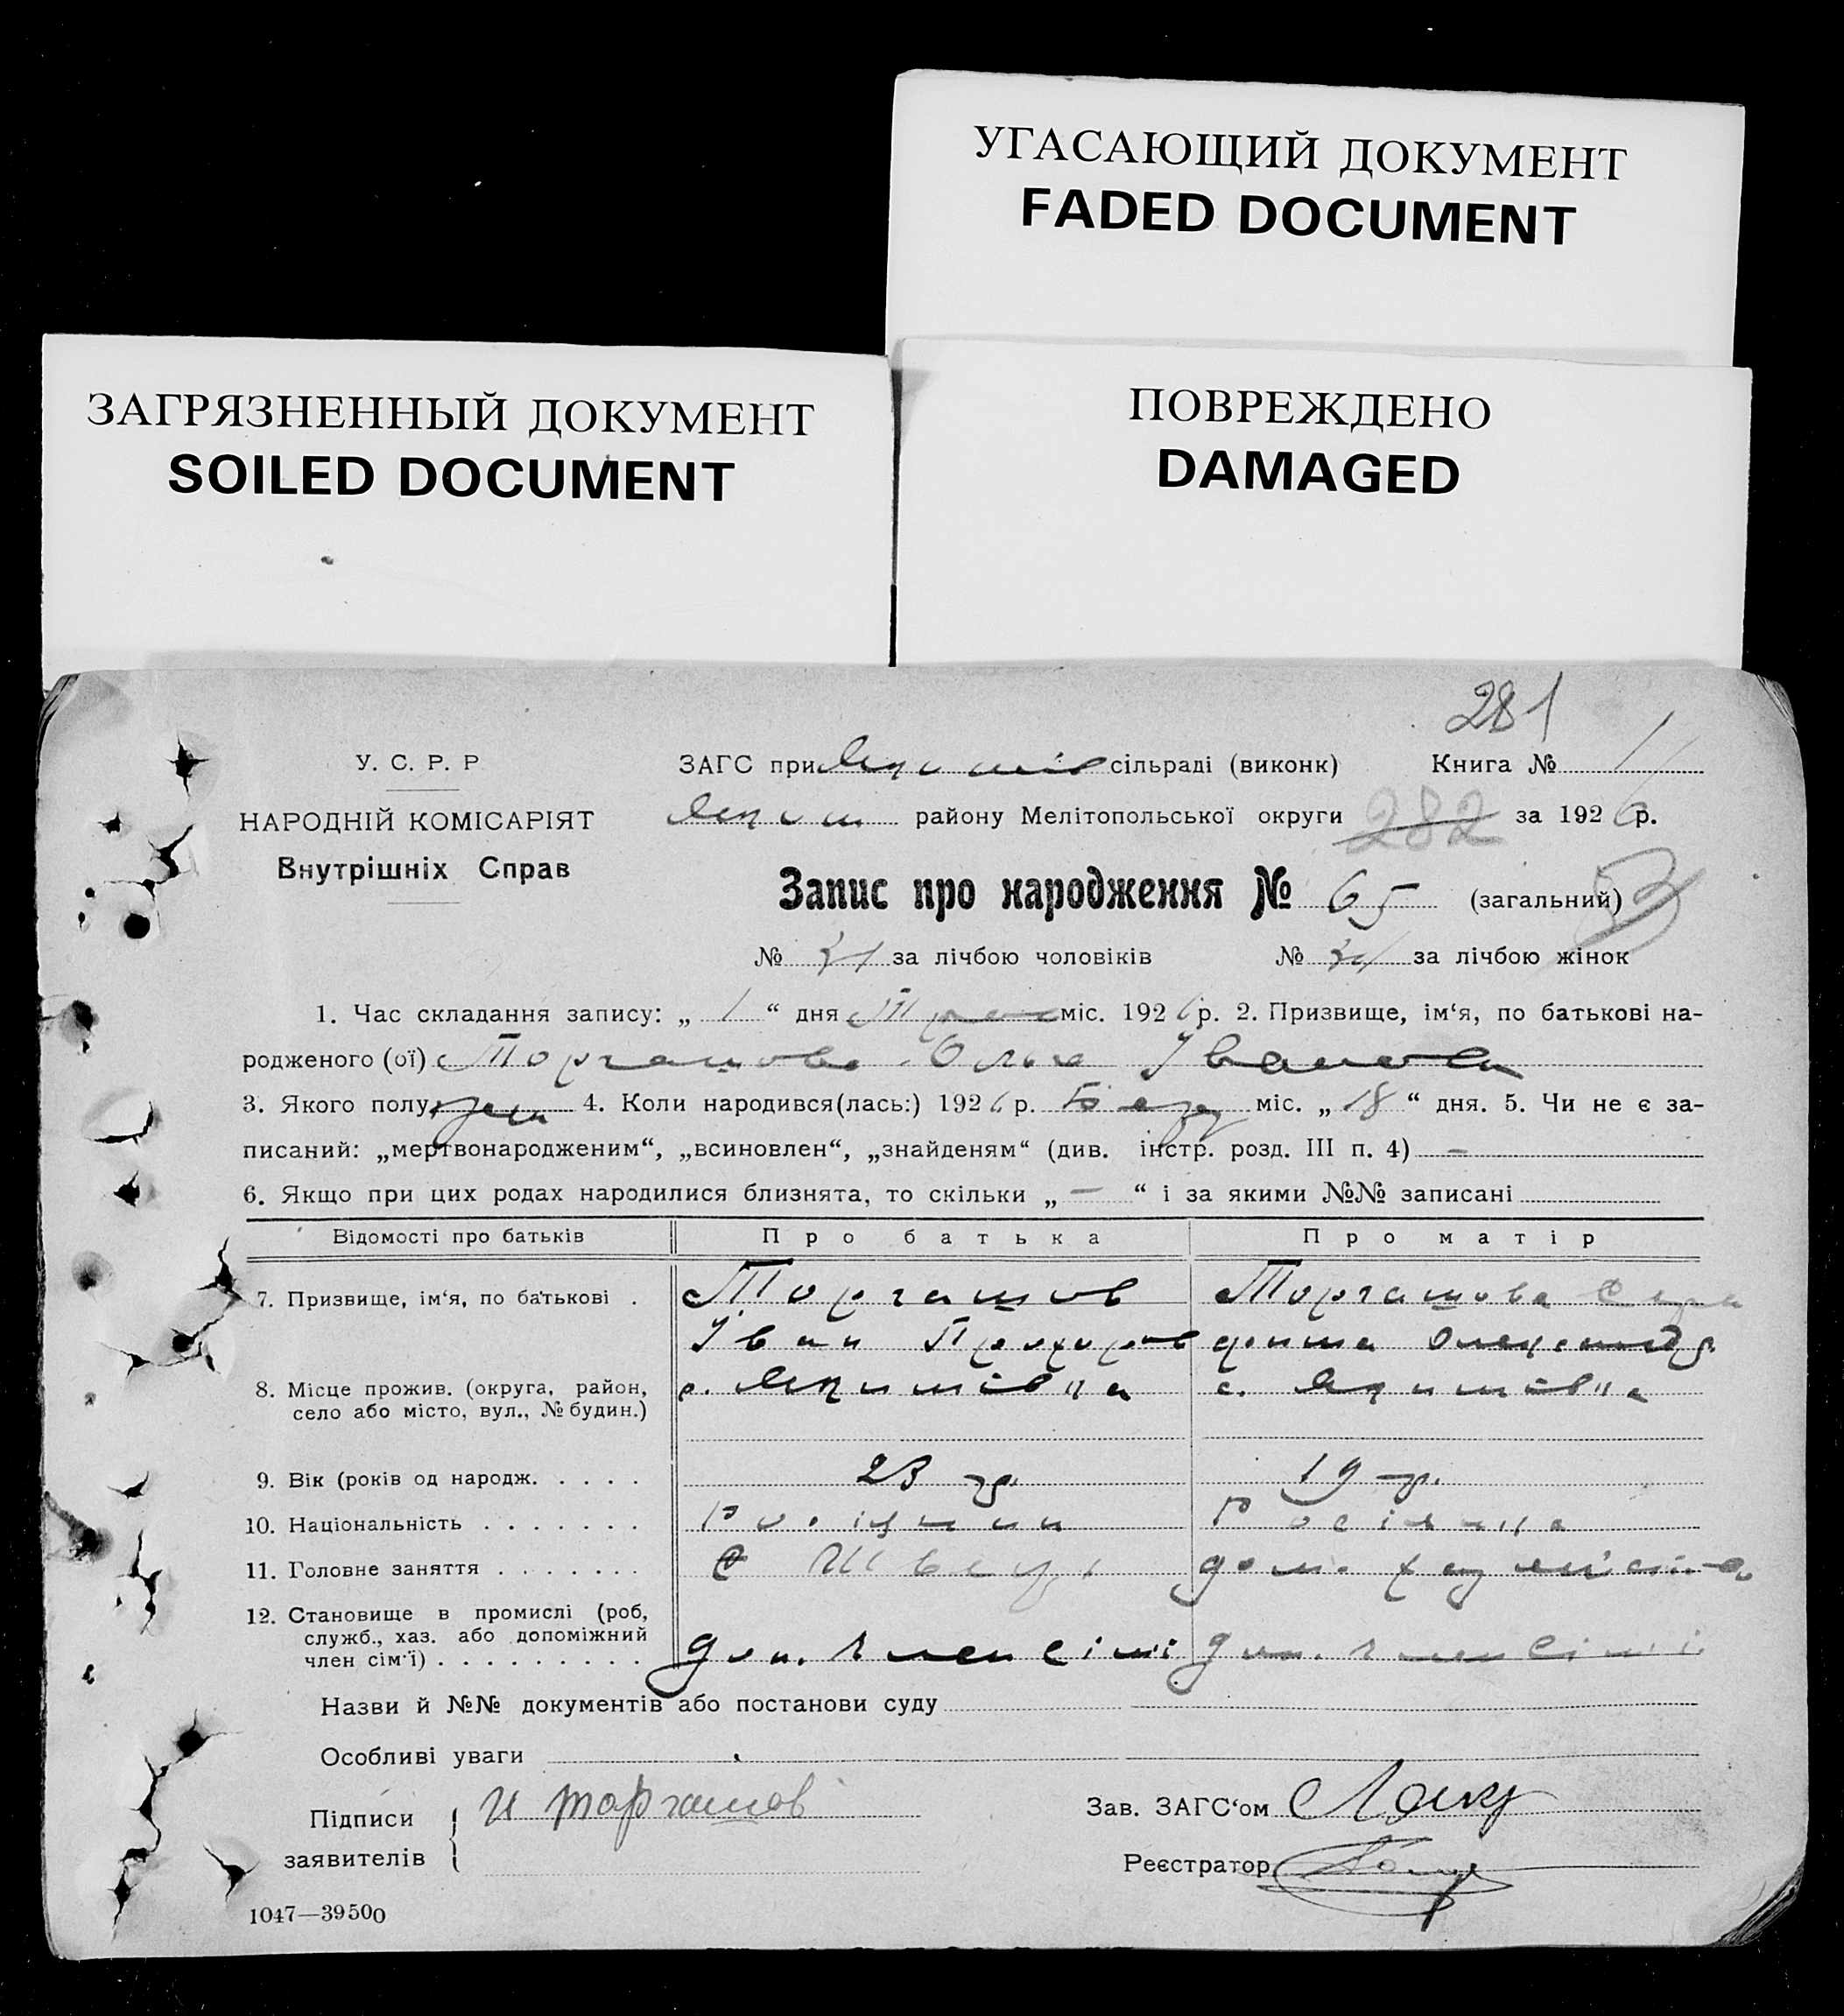 УГАСАЮЩИЙ ДОКУМЕНТ
FADED DOCUMENT
ЗАГРЯЗНЕННЫЙ ДОКУМЕНТ
SOILED DOCUMENT
ПОВРЕЖДЕНО
DAMAGED
281
У. С. Р. Р
НАРОДНІЙ КОМІСАРІЯТ
Внутрішніх Справ
ЗАГС при Якимів сільраді (виконк) Книга № 1
Яким району Мелітопольської округи 282 за 1926 р.
Запис про народження № 65 (загальний)
№ за лічбою чоловіків № за лічбою жінок
1. Час складання запису: „ 1 “ дня Трав міс. 1926 р. 2. Призвище, ім‘я, по батькові на-
родженого (ої) Торгашова Ольга Іванов
3. Якого полу жін 4. Коли народився(лась:) 1926 р. Берез міс. „ 18 “ дня. 5. Чи не є за-
писаний: „мертвонародженим“, „всиновлен“, „знайденям“ (див. інстр. розд. III п. 4) —
6. Якщо при цих родах народилися близнята, то скільки „ — “ і за якими №№ записані
Відомості про батьків Про батька Про матір
7. Призвище, ім‘я, по батькові . Торгашов Торгашова
Іван Прохоров Олександр.
8. Місце прожив. (округа, район, с. Якимівка с. Якимівка
село або місто, вул., № будин.)
9. Вік (років од народж. . . . . 23 р. 19 р.
10. Національність . . . . . . . Росіянин Росіянка
11. Головне заняття . . . . . . . дом. хазяйства
12. Становище в промислі (роб,
служб., хаз. або допоміжний
член сім‘ї) . . . . . . . . . доп. член сімї доп. член сімї
Назви й №№ документів або постанови суду
Особливі уваги
Підписи И Торгашов Зав. ЗАГС‘ом
заявителів Реєстратор
1047—39500